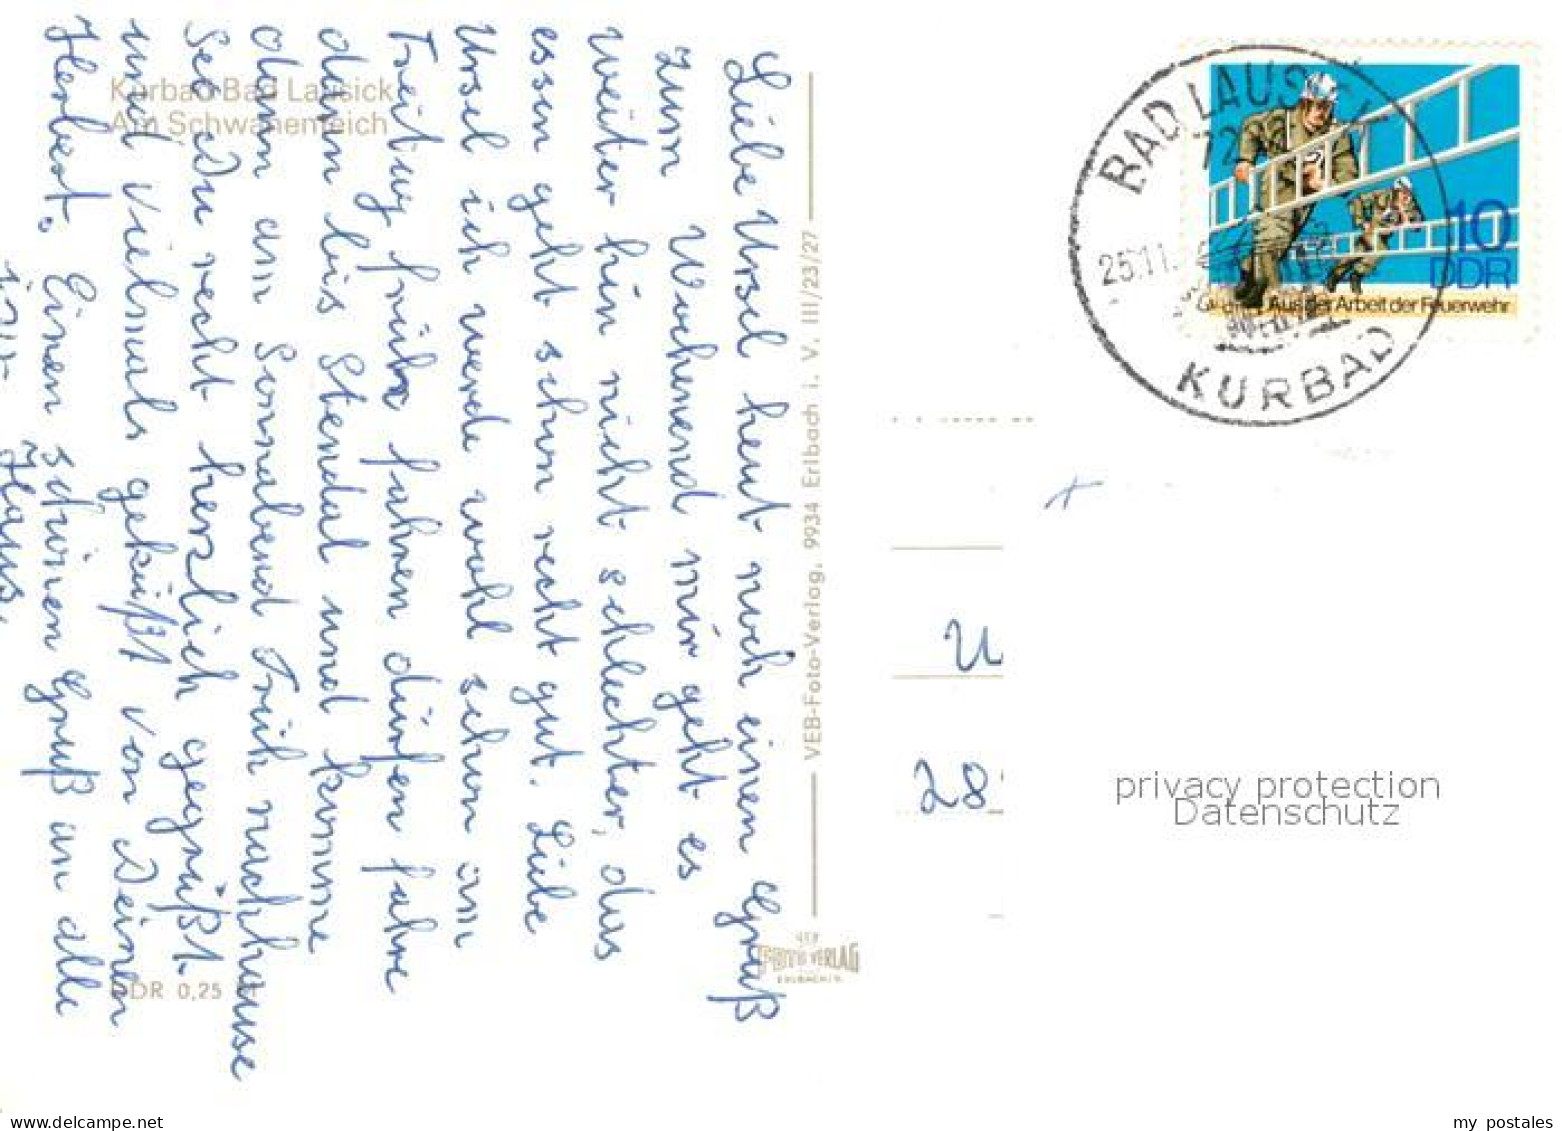 Kurbad Bad Lausick
Am Schwanenteich
Liebe Ursel heut noch einen Gruß
zum Wochenend mir geht es
weiter hin nicht schlechter, das
essen geht schon recht gut. Liebe
Ursel ich werde wohl schon am
Freitag früh fahren dürfen fahre
dann bis Stendal und komme
dann am Sonnabend Früh nachhause
Sei Du recht herzlich gegrüßt
und vielmals geküßt von Deinen
Herbert. Einen schönen Gruß an alle
im Haus.
DDR 0,25
VEB-Foto-Verlag, 9934 Erlbach i. V. III/23/27
VEB
FOTO VERLAG
ERLBACH V.
BAD LAUSICK
72
25.11.
KURBAD
10
DDR
Aus der Arbeit der Feuerwehr
U
28
privacy protection
Datenschutz
my postales